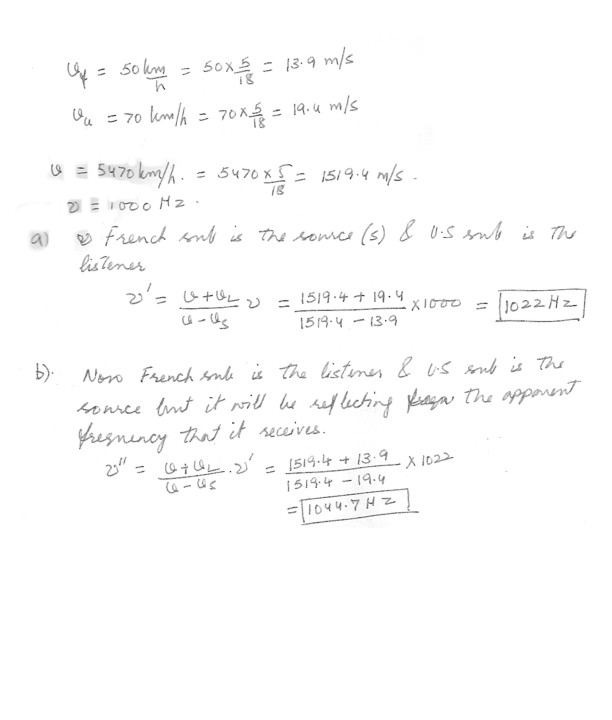 υf = 50 km/h = 50×5/18 = 13.9 m/s
υu = 70 km/h = 70×5/18 = 19.4 m/s
υ = 5470 km/h. = 5470 × 5/18 = 1519.4 m/s.
ν = 1000 Hz.
a) French sub is the source (s) & U.S sub is the
listener
ν' = (υ+υL)/(υ-υs) ν = (1519.4 + 19.4)/(1519.4 - 13.9) ×1000 = 1022 Hz
b). Now French sub is the listener & U.S sub is the
source but it will be reflecting the apparent
frequency that it receives.
ν'' = (υ+υL)/(υ-υs) . ν' = (1519.4 + 13.9)/(1519.4 - 19.4) × 1022
= 1044.7 Hz